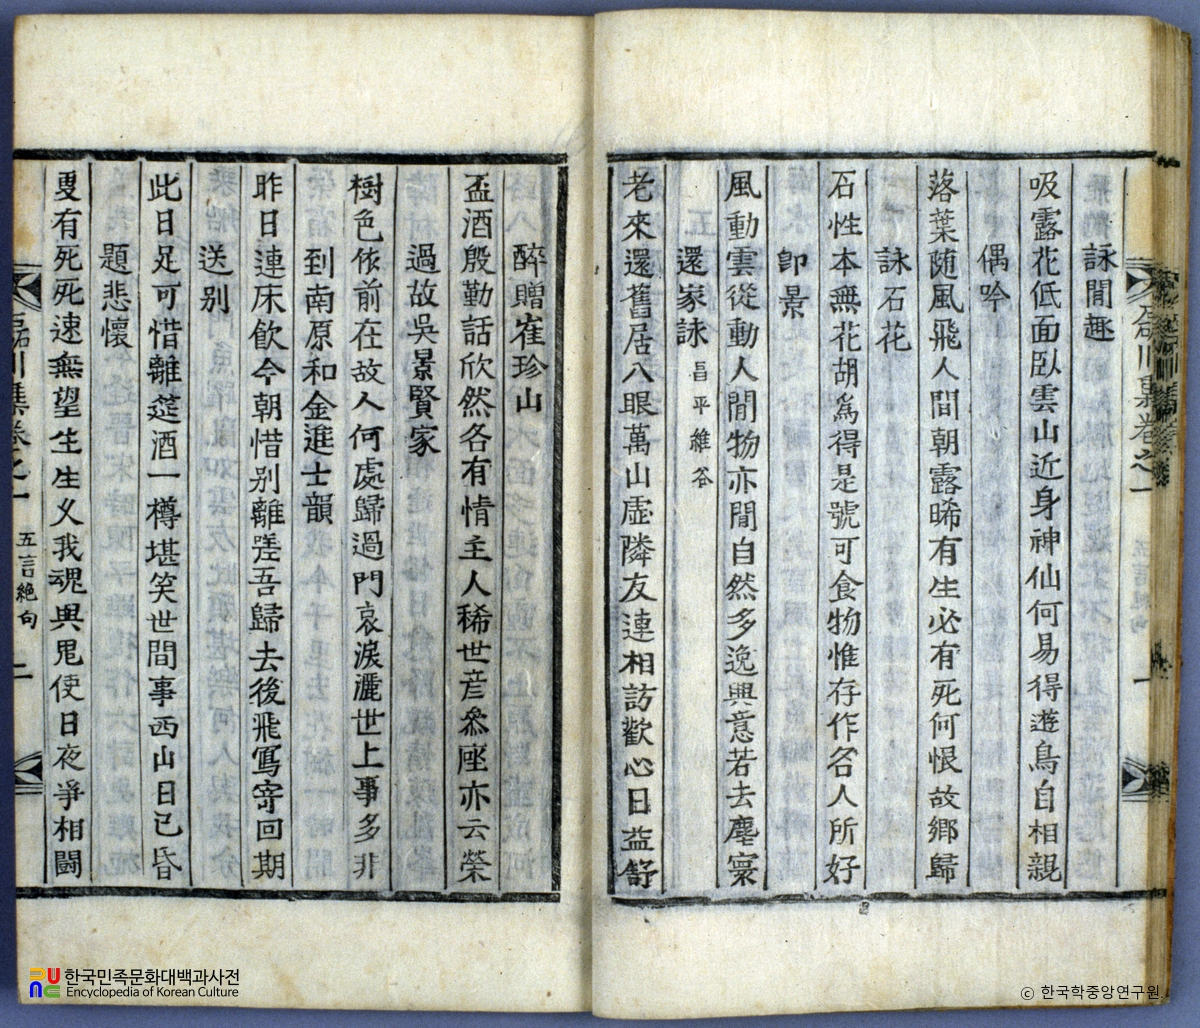 詠閒趣
吸露花低面臥雲山近身神仙何易得遊鳥自相親
偶吟
落葉随風飛人間朝露晞有生必有死何恨故鄉歸
詠石花
石性本無花胡爲得是號可食物惟存作名人所好
卽景
風動雲從動人閒物亦閒自然多逸興意若去塵寰
還家詠 昌平維谷
老來還舊居八眼萬山虛隣友連相訪歡心日益舒
醉贈崔珍山
盃酒殷勤話欣然各有情主人稀世彦叅座亦云榮
過故吳景賢家
樹色依前在故人何處歸過門哀淚灑世上事多非
到南原和金進士韻
昨日連床飮今朝惜别離嗟吾歸去後飛寫寄回期
送别
此日足可惜離筵酒一樽堪笑世間事西山日已昏
題悲懷
更有死死速無望生生乆我魂與鬼使日夜爭相鬪
川集卷之一 五言絶句 二
한국민족문화대백과사전
Encyclopedia of Korean Culture
© 한국학중앙연구원